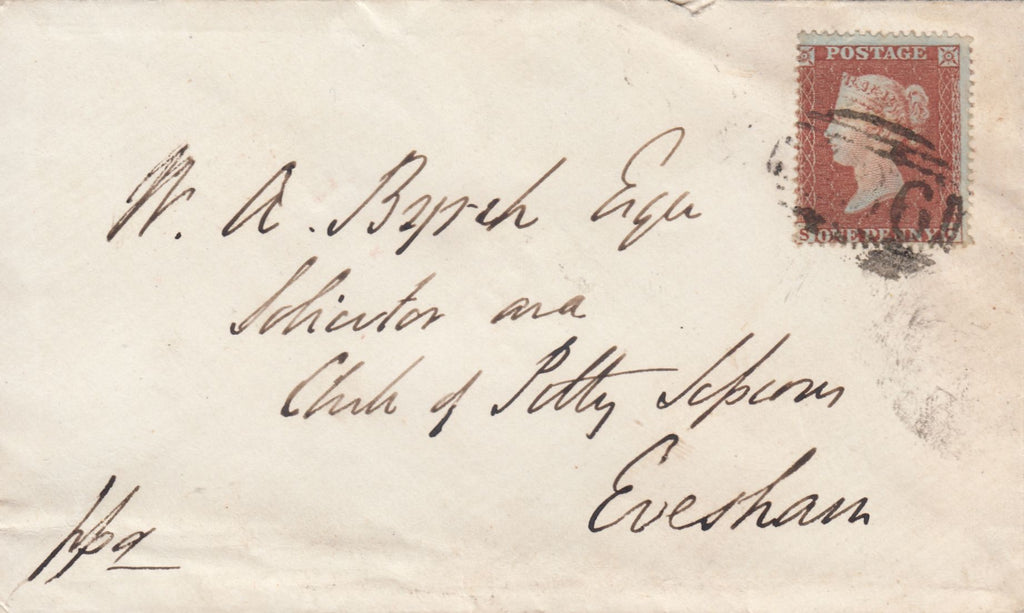 POSTAGE
S ONE PENNY
W. A. Byrch Esqr
Solicitor and
Clerk of Petty Sessions
Evesham